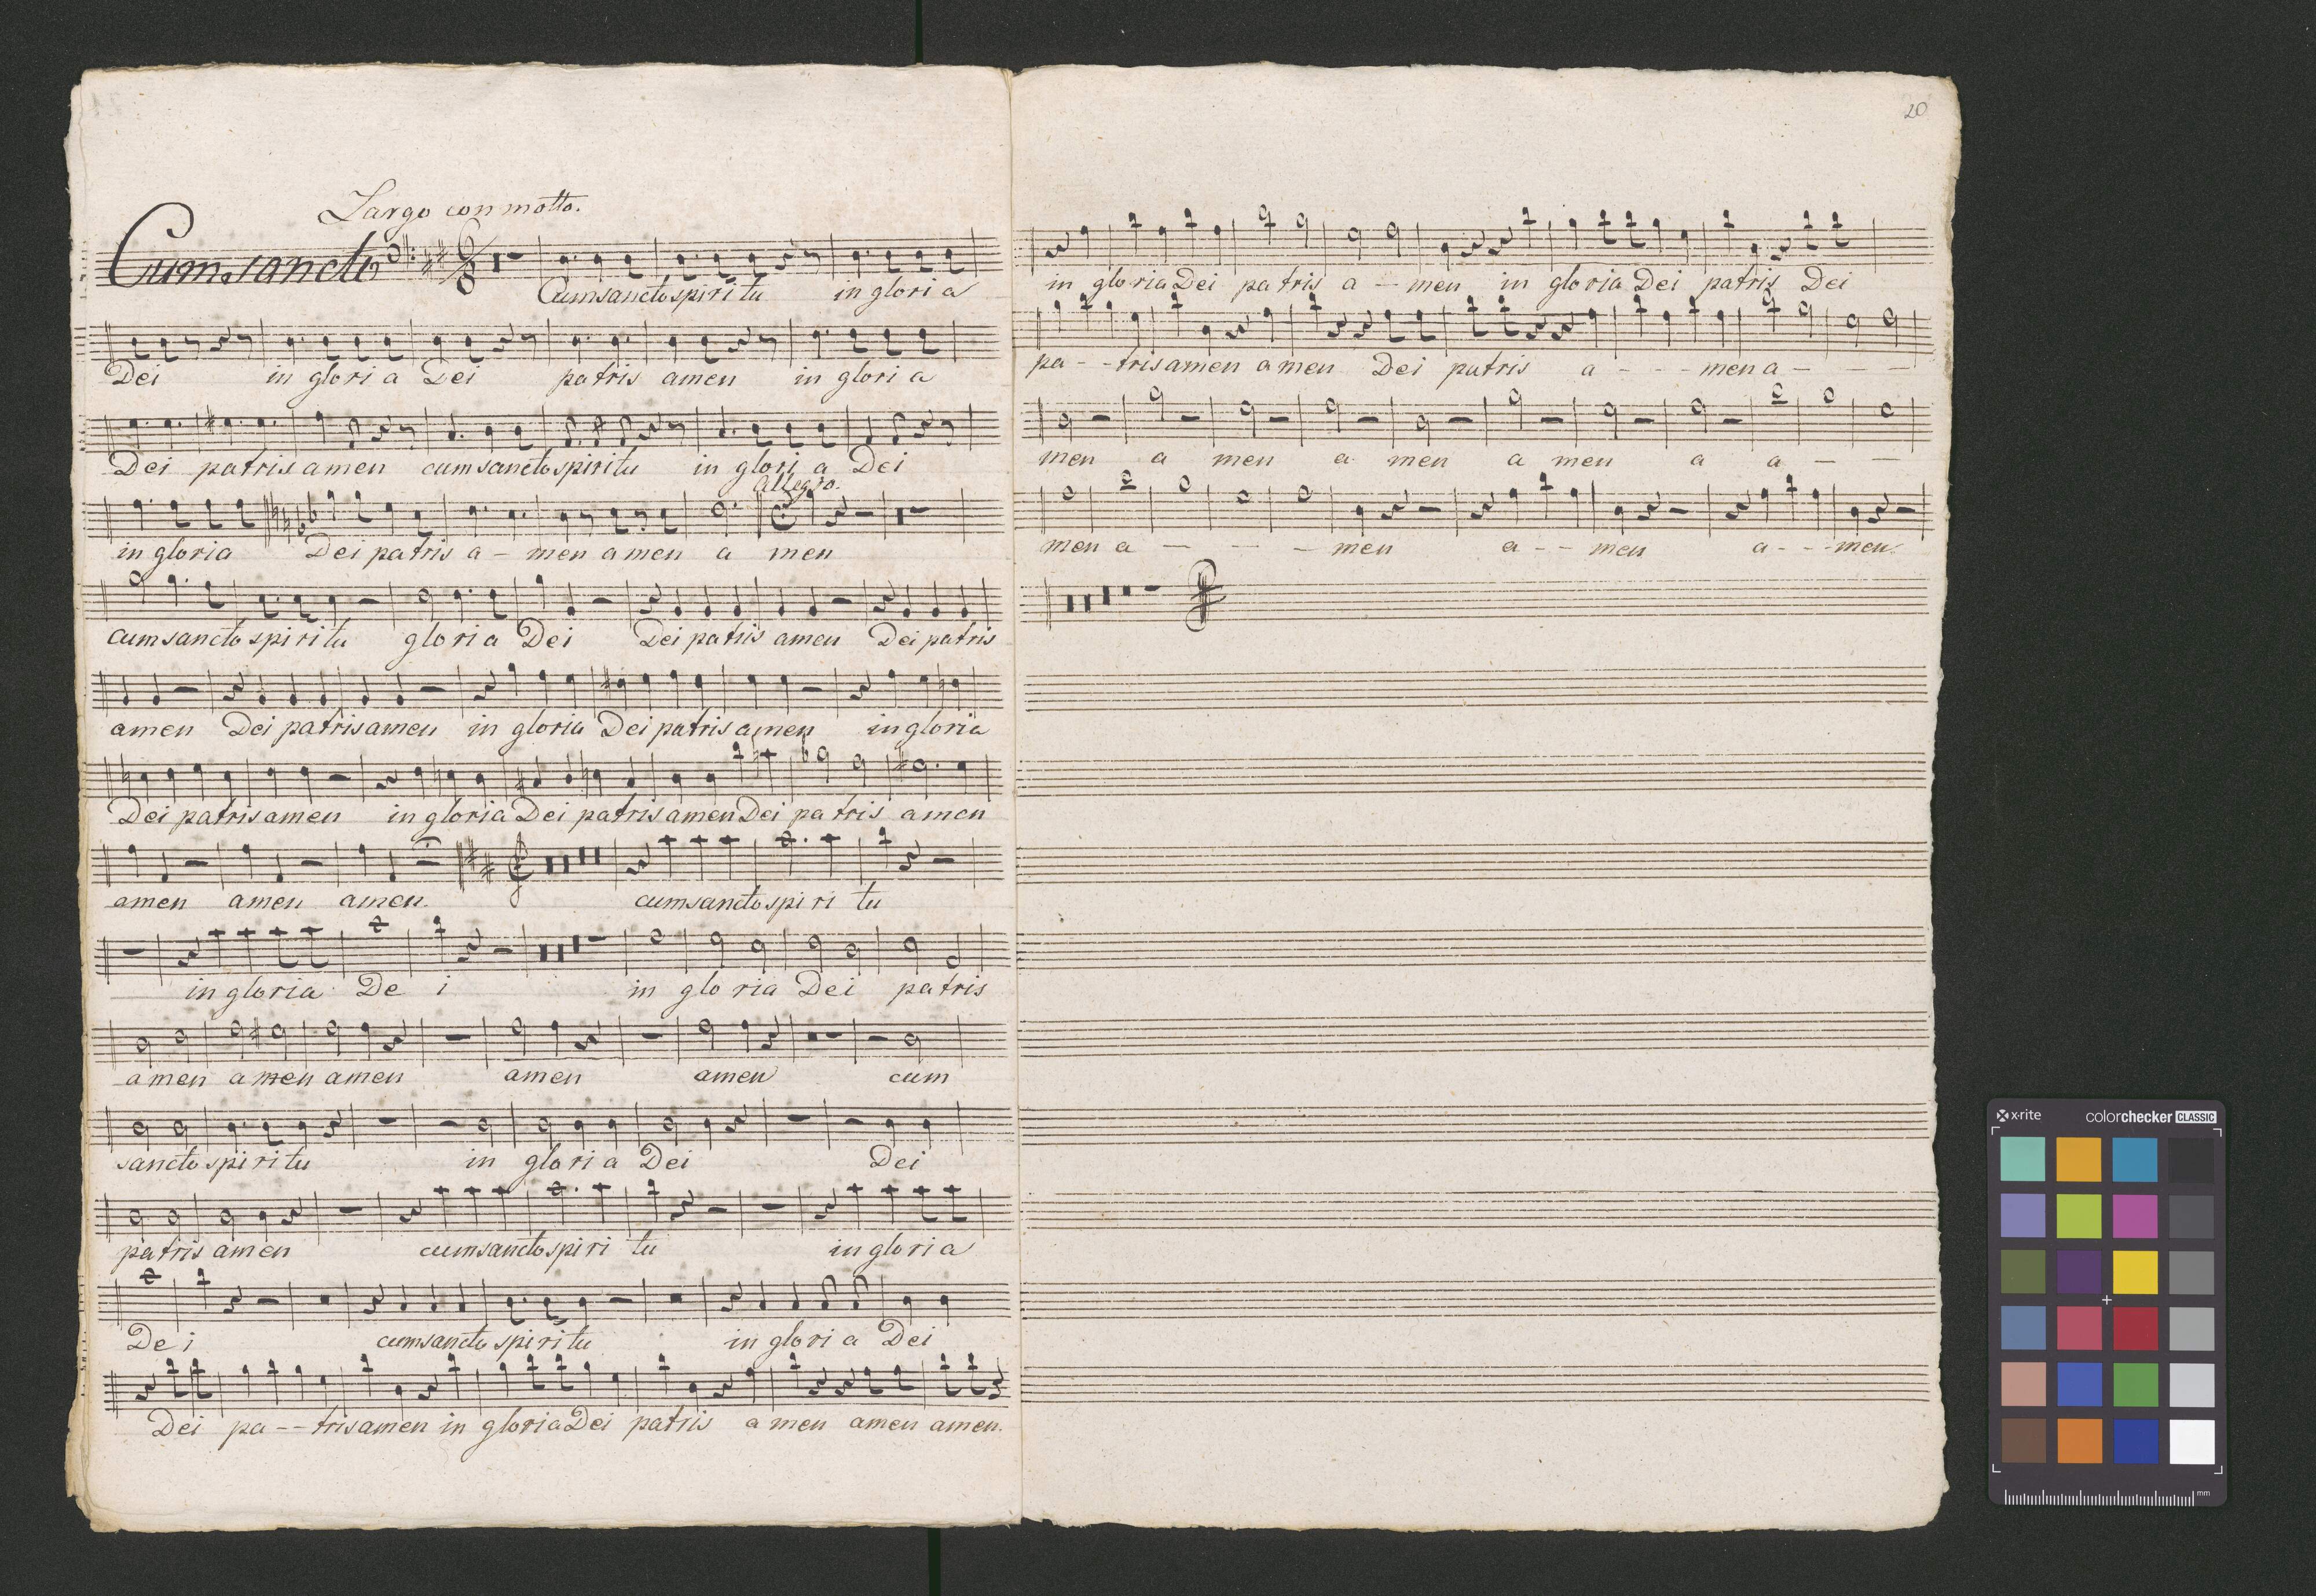 Largo con motto.
Cum sancto
Cum sancto spiritu in gloria
Dei in gloria Dei patris amen in gloria
Dei patris amen cum sancto spiritu in gloria Dei
Allegro.
in gloria Dei patris a - men amen a men
cum sancto spiritu gloria Dei Dei patris amen Dei patris
amen Dei patris amen in gloria Dei patris amen in gloria
Dei patris amen in gloria Dei patris amen Dei patris amen
amen amen amen. cum sancto spiri tu
in gloria De i in gloria Dei patris
amen amen amen amen amen cum
sancto spiritu in gloria Dei Dei
patris amen cum sancto spiri tu in gloria
De i cum sancto spiritu in gloria Dei
Dei pa - - tris amen in gloria Dei patris amen amen amen.
20
in gloria Dei patris a - - men in gloria Dei patris Dei
pa - - tris amen amen Dei patris a - - - men a - - -
men a men a men a men a a - -
men a - - - men a - - men a - - - men.
x-rite colorchecker CLASSIC
mm